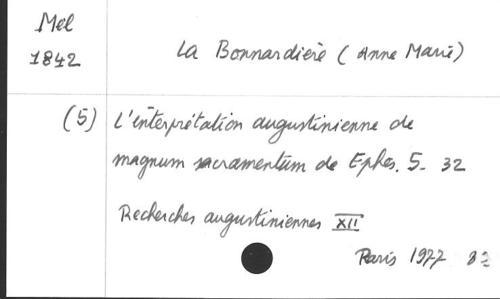 Mel
1842
La Bonnardière (Anne Marie)
(5) L'interprétation augustinienne de
magnum sacramentum de Ephes. 5- 32
Recherches augustiniennes XII
Paris 1977